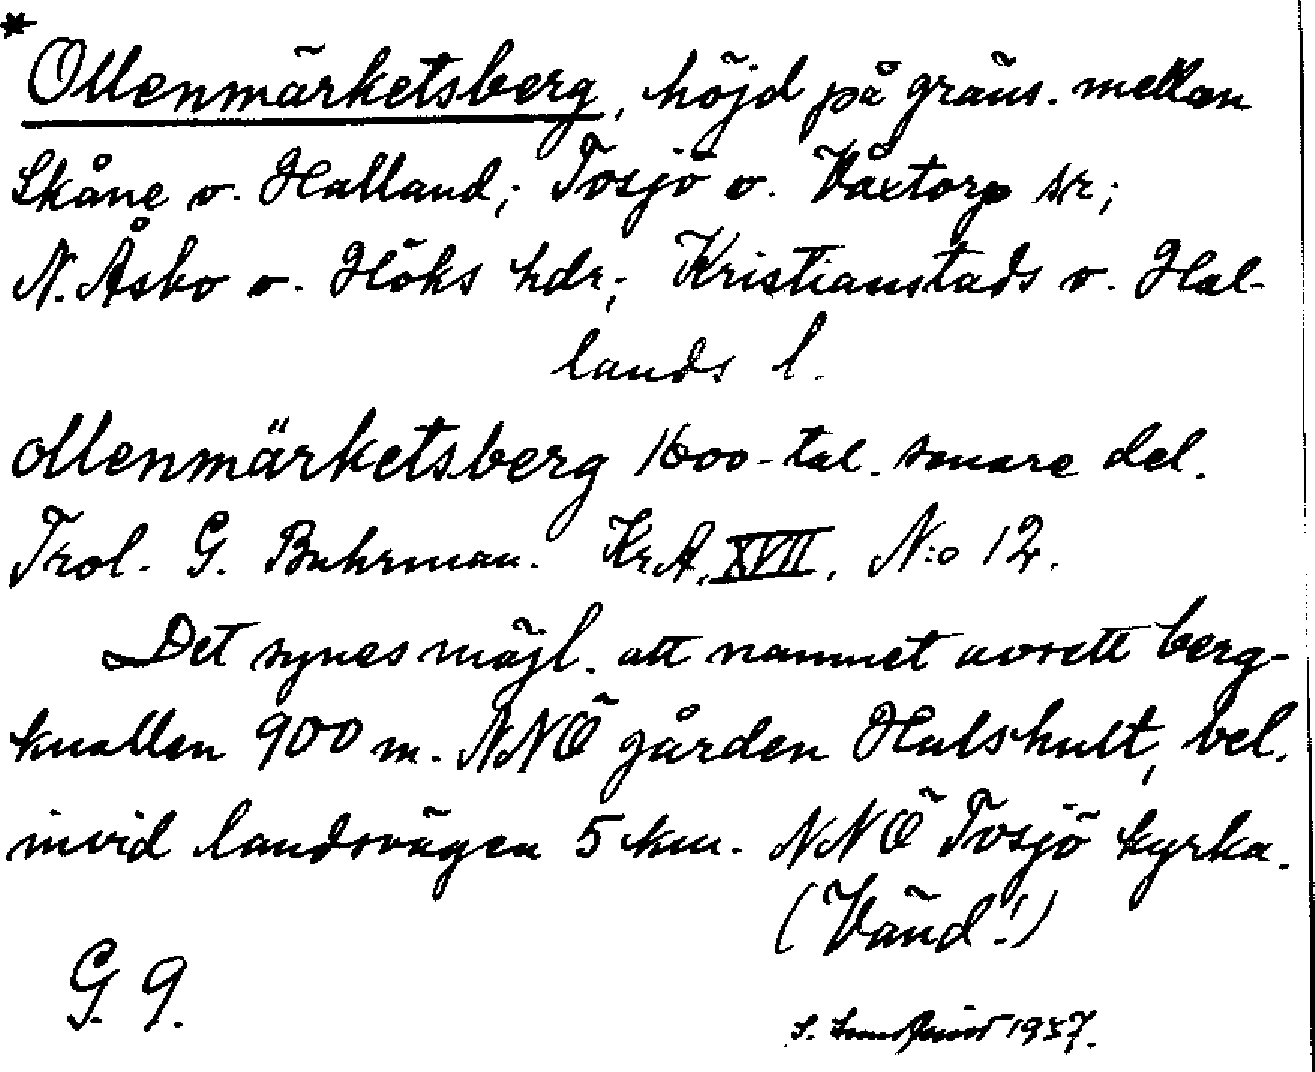 * Ollenmärketsberg, höjd på gräns. mellan
Skåne o. Halland; Tosjö o. Våxtorp sr;
N. Åsbo o. Höks hdr; Kristianstads o. Hal-
lands l.
Ollenmärketsberg 1600-tal. senare del.
Trol. G. Buhrman. Kr.A. XVII. N:o 12.
Det synes möjl. att namnet avsett berg-
knallen 900 m. NNÖ gården Hulshult, bel.
invid landsvägen 5 km. NNÖ Tosjö kyrka.
(Vänd!)
G. 9.
S. 1937.